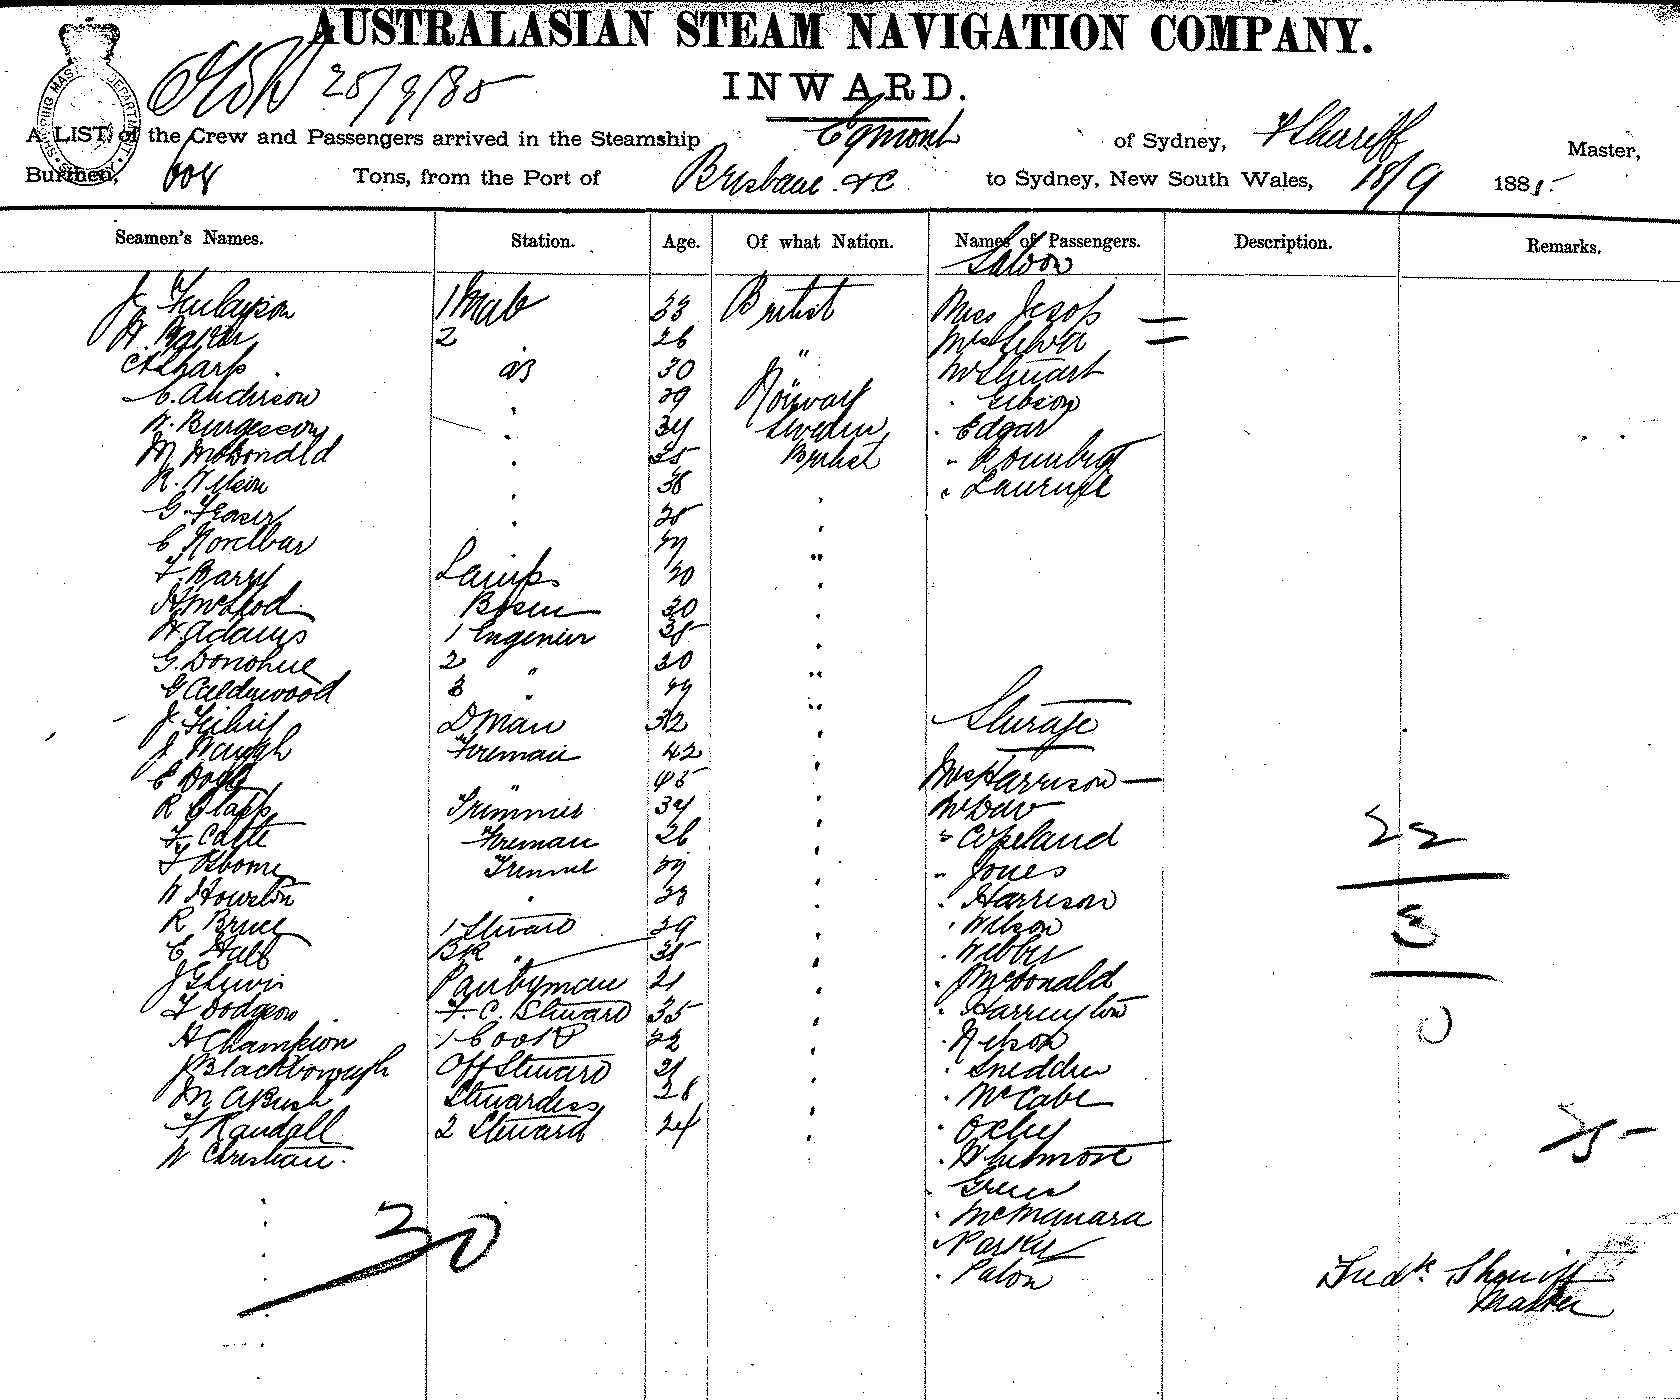 AUSTRALASIAN STEAM NAVIGATION COMPANY.
INWARD.
28/9/85
A LIST of the Crew and Passengers arrived in the Steamship Egmont of Sydney, F Sherriff Master,
Burthen, 608 Tons, from the Port of Brisbane &c to Sydney, New South Wales, 18/9 1885.
Seamen's Names. Station. Age. Of what Nation. Names of Passengers. Description. Remarks.
Saloon
J Finlayson 1 Mate 33 British Miss Jesop
H. Baker 2 " 26 Mrs Silva
Sharp AB 30 " Mr Stuart
C. Anderson " 29 Norway " Gibson
N. Burgesson " 34 Sweden " Edgar
M McDonald " 25 British "
R. Wilson " 38 "
G. Fraser " 25 "
C "
F. Barry Lamps 20 "
McLeod Bosun 30 "
H Adams 1 Engenier 35 "
G. Donohue 2 " 30 "
G Calderwood 3 " "
J D Man 32 " Sturage
J Waugh Foreman 42 "
E " 45 " Mrs Harrison
R Clapp Trimmer 34 " Mr Daw
F. Cattle Fireman 26 " Copeland
F Osborne Trimmer " Jones
W Houston " 23 " Harrison
R Bruce 1 Steward 29 " Wilson
E Hall BK " 35 " Webber
J Lewis Pantryman 21 " J McDonald
F Dodgson F. C. Steward 35 " Harrington
H Champion 1 Cook 22 " Nelson
J Blackborough Off Steward 21 " Snedden
M A Bush Stewardess 28 " McCabe
F Randall 2 Steward 24 " Oxley
W Christian " Whitmore
" Green
" McManara
"
" Paton
30
22
3
0
25
Fredk. Sherriff
Master